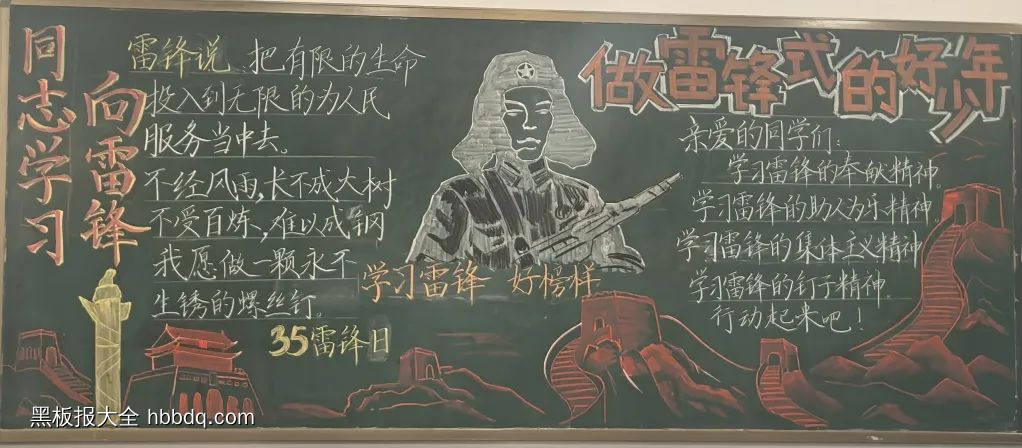 向雷锋
同志学习
雷锋说、把有限的生命
投入到无限的为人民
服务当中去。
不经风雨,长不成大树
不受百炼,难以成钢
我愿做一颗永不
生锈的螺丝钉。
35雷锋日
学习雷锋 好榜样
做雷锋式的好少年
亲爱的同学们:
学习雷锋的奉献精神。
学习雷锋的助人为乐精神。
学习雷锋的集体主义精神
学习雷锋的钉子精神。
行动起来吧!
黑板报大全 hbbdq.com